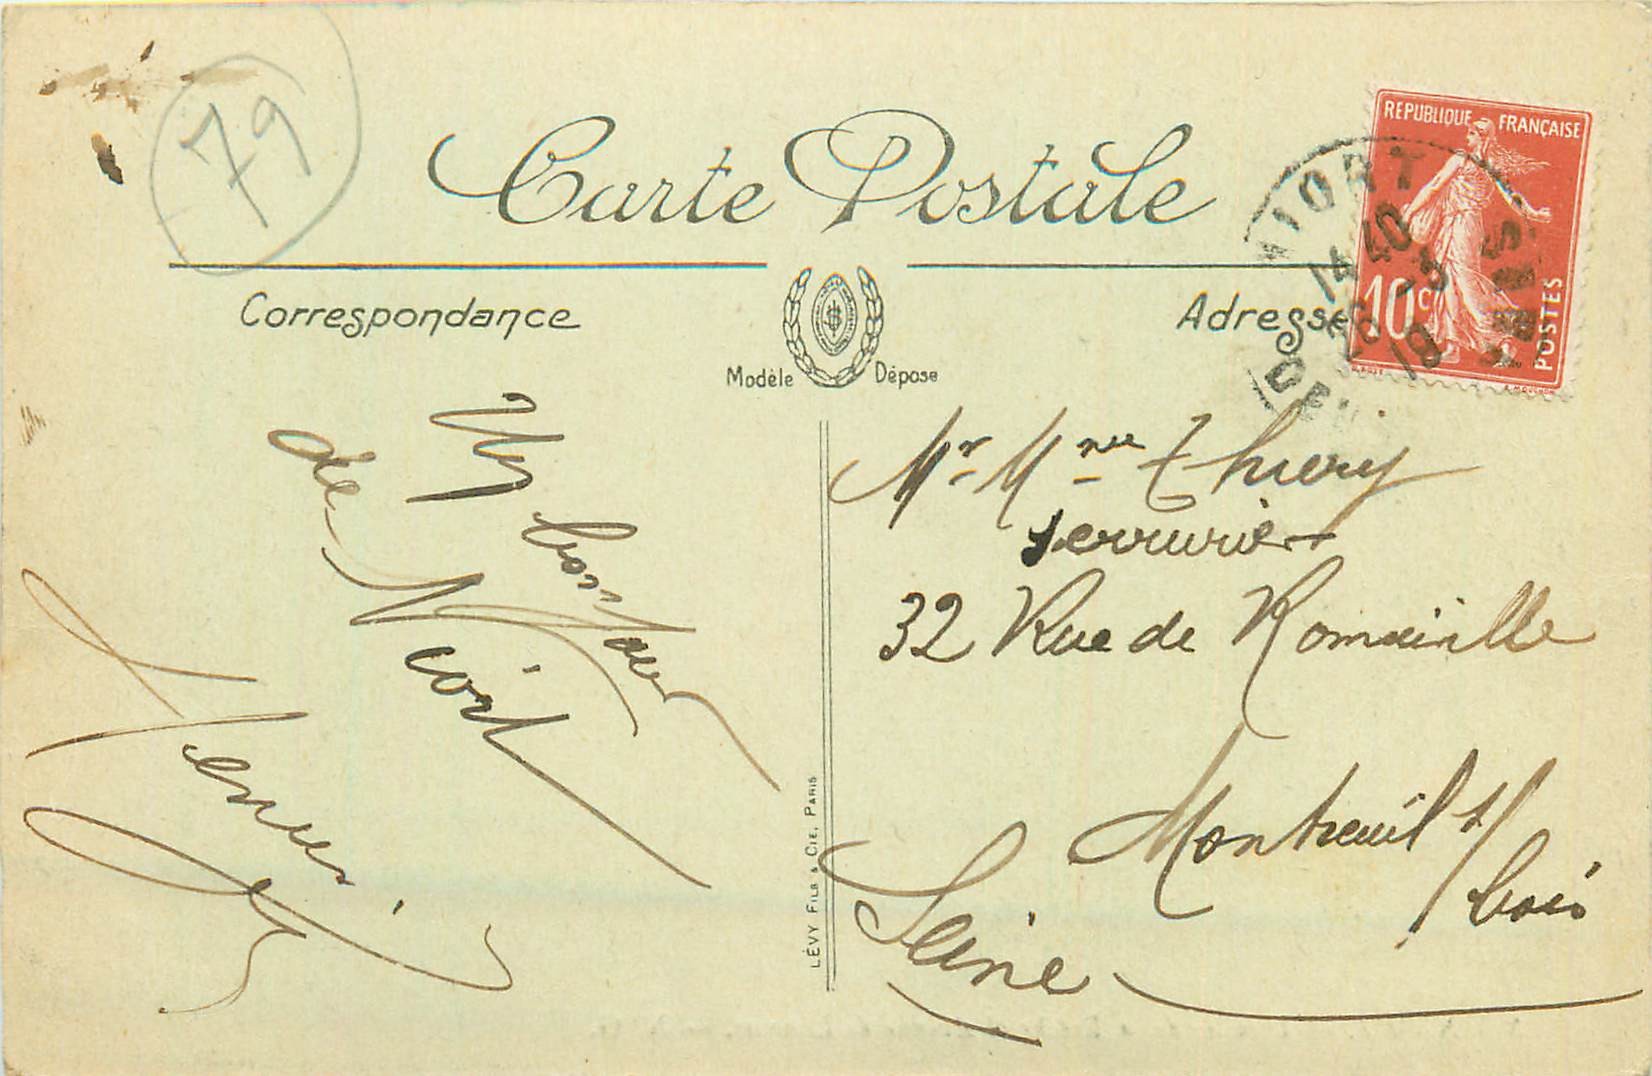 79
Carte Postale
REPUBLIQUE FRANÇAISE
10c
POSTES
NIORT
14 40
DEUX SEVRES
Correspondance
Adresse
Modèle Déposé
Un bonjour
de Niort
Henri
Mr Mme Thiery
serrurier
32 Rue de Romainville
Montreuil s/
bois
Seine
LÉVY FILS & CIE, PARIS